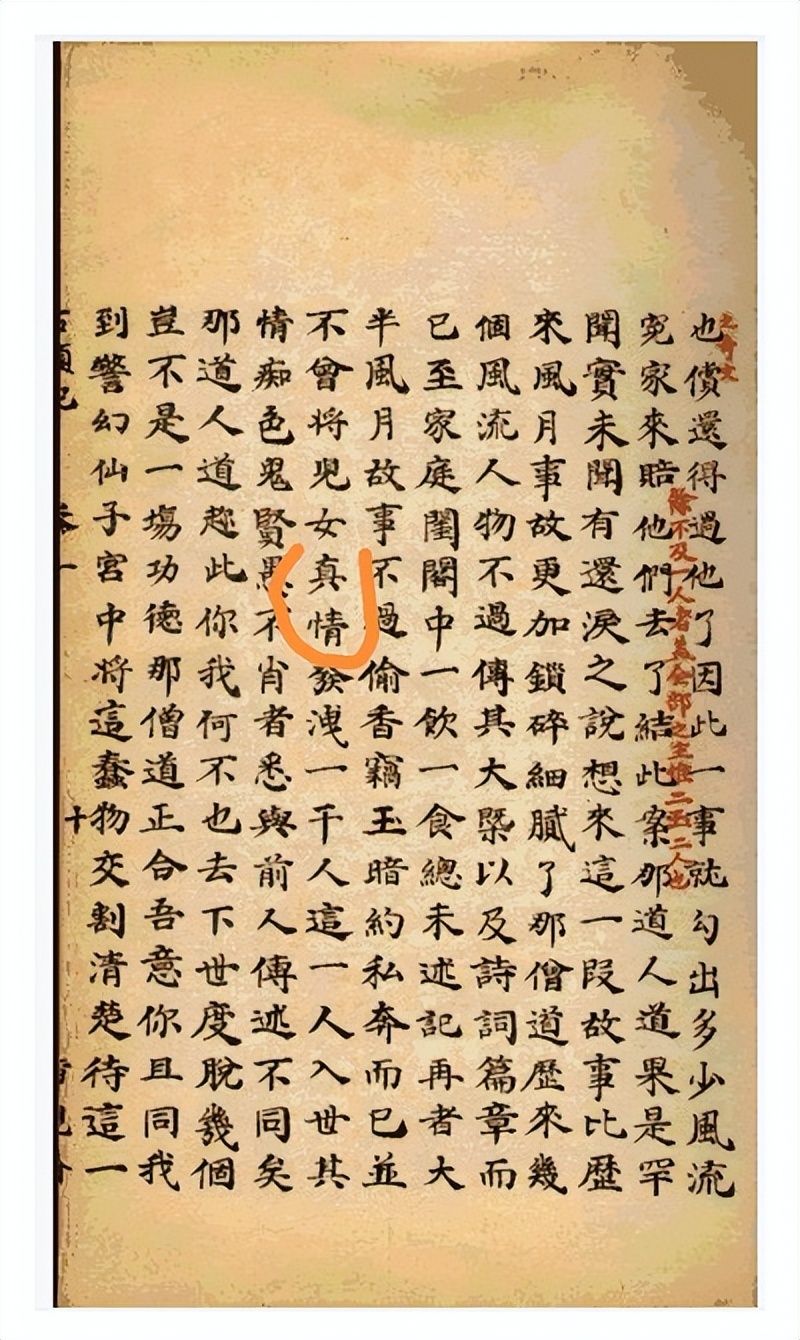 之奇文
也償還得過他了因此一事就勾出多少風流
餘不及一人者蓋全部之主惟二玉二人也
冤家來賠他們去了結此案那道人道果是罕
聞實未聞有還淚之說想來這一段故事比歷
來風月事故更加鎖碎細膩了那僧道歷來幾
個風流人物不過傳其大槩以及詩詞篇章而
已至家庭閨閣中一飲一食總未述記再者大
半風月故事不過偷香竊玉暗約私奔而已並
不曾將兒女真情發洩一干人這一人入世其
情痴色鬼賢愚不肖者悉與前人傳述不同矣
那道人道趂此你我何不也去下世度脫幾個
豈不是一塲功德那僧道正合吾意你且同我
到警幻仙子宮中將這蠢物交割清楚待這一
石頭記 卷一 十